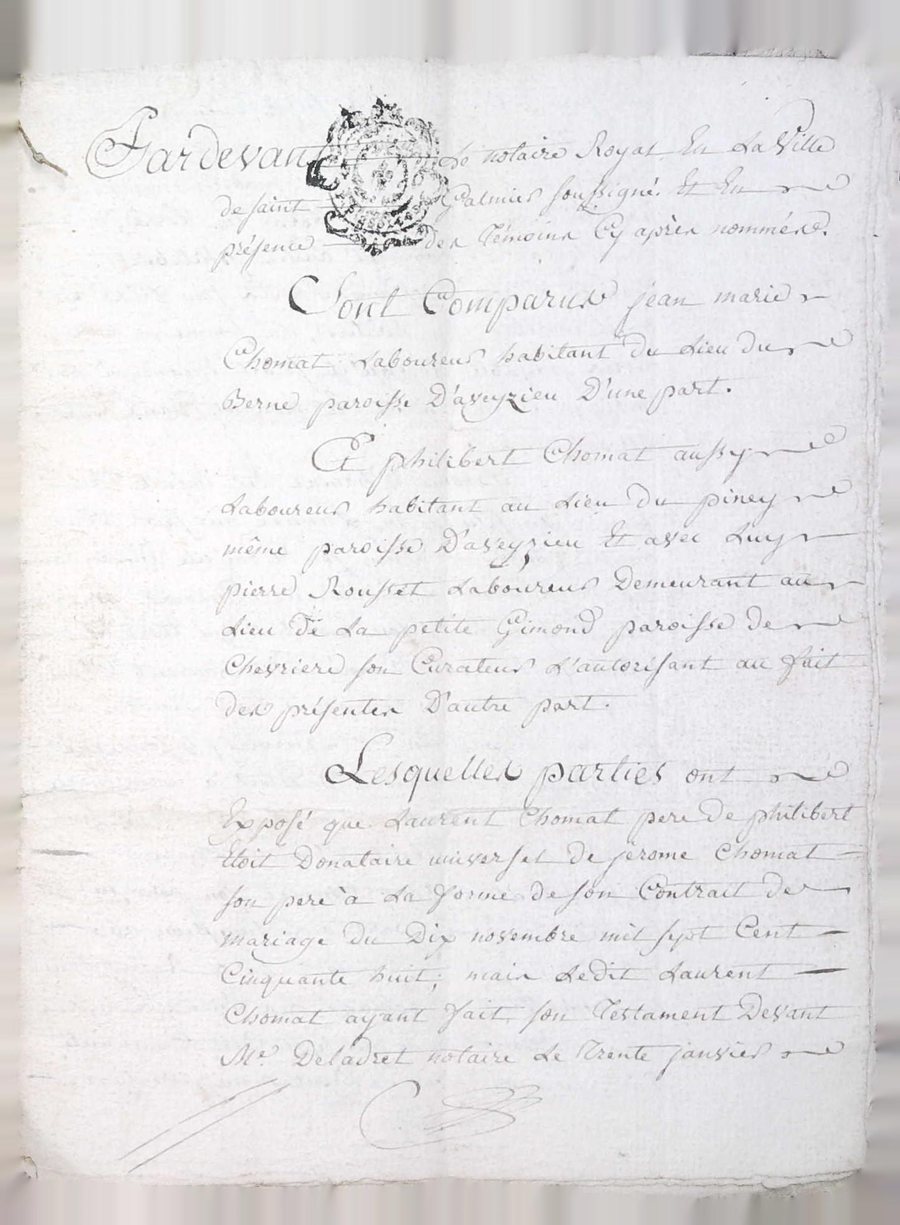 Pardevant Le notaire Royal En La Ville
de saint Galmier soussigné Et En
présence des Témoins Cy après nommés.
Sont Comparus jean marie
Chomat Laboureur habitant du Lieu du
Berne paroisse D'aveyzieu D'une part.
Et philibert Chomat aussy
Laboureur habitant au Lieu du piney
même paroisse D'aveyzieu Et avec Luy
pierre Rousset Laboureur Demeurant au
Lieu de La petite Gimond paroisse de
Chevriere son Curateur L'autorisant au fait
des présentes D'autre part.
Lesquelles parties ont
Exposé que Laurent Chomat pere de philibert
Etoit Donataire universel de jerome Chomat
son pere à La forme de son Contrait de
mariage du Dix novembre mil sept Cent
Cinquante huit; mais Ledit Laurent
Chomat ayant fait son Testament Devant
Me. Deladret notaire Le Trente janvier